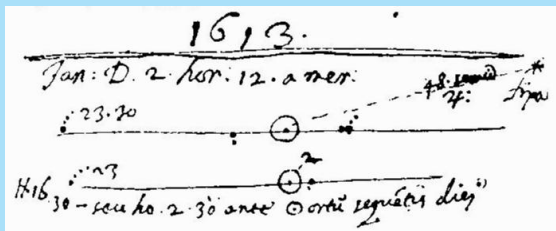 1613.
Jan: D. 2. hor. 12. a mer:
23.30
48. 4: fixa
23 2
H. 16.30 – seu ho. 2. 30 ante ortū sequētis diei